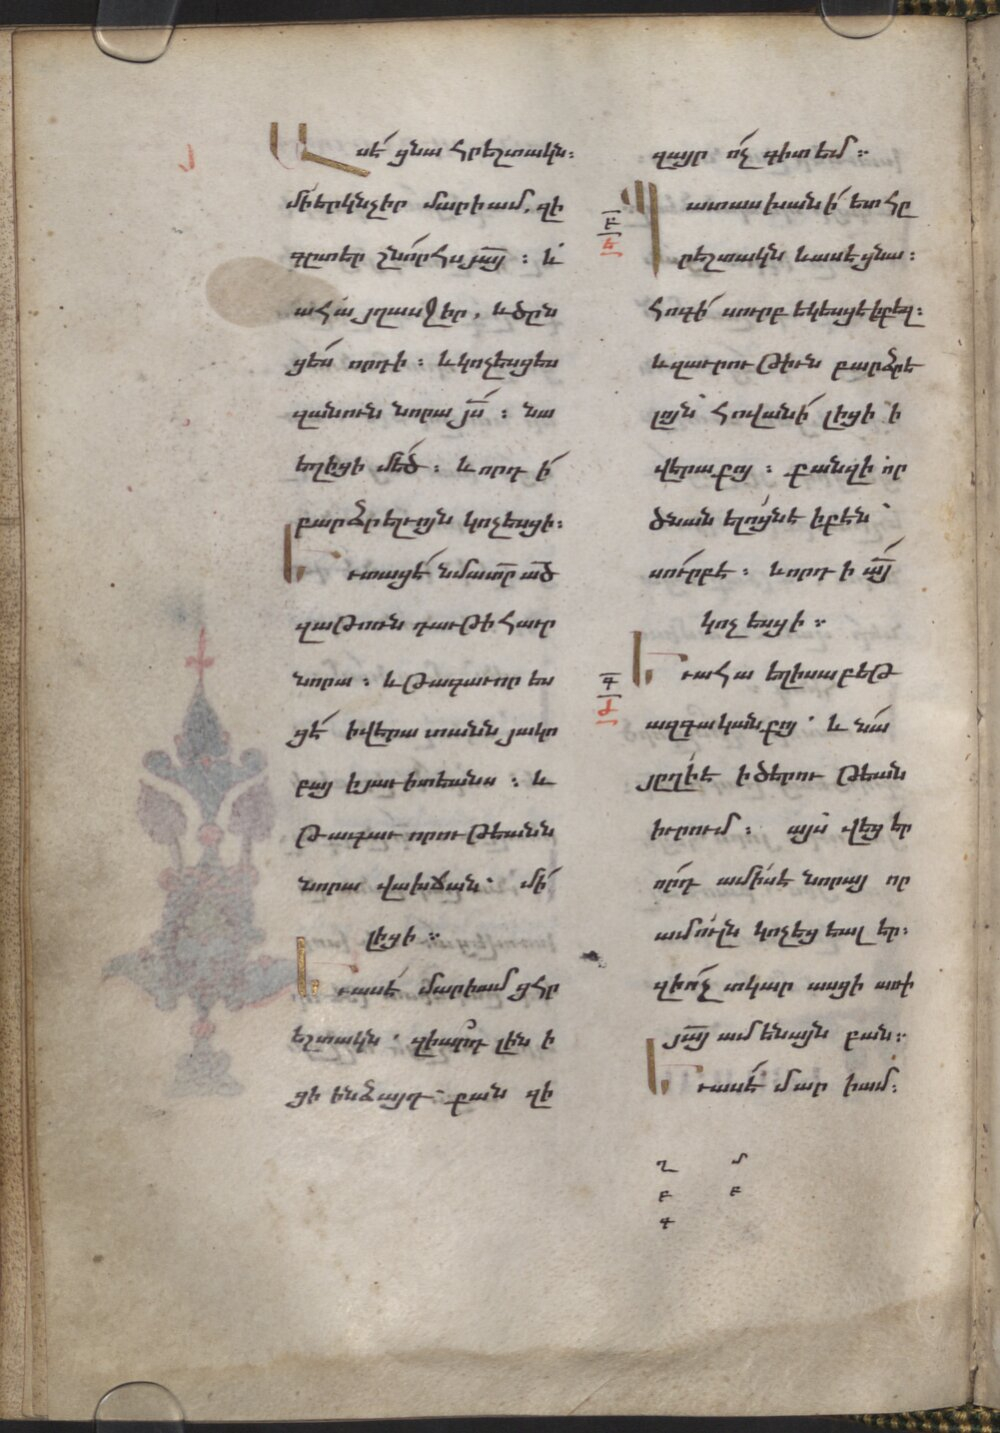 Ասէ՛ ցնա հրեշտակն:
մի՛ երկնչիր մարիամ, զի
գըտեր շնո՛րհս յա͞յ : և
ահա յղասջիր, և ծըն
ցես որդի : և կոչեսցես
զանուն նորա յ͞ս : նա
եղիցի մեծ : և որդի՛
բարձրելոյն կոչեսցի:
Եւ տացէ՛ նմա տ͞ր ա͞ծ
զաթոռն դաւթի հաւր
նորա : և թագաւորես
ցէ՛ ի վերա տանն յակո
բայ ի յաւիտեանս : և
թագաւորութեանն
նորա վախճան՝ մի՛
լիցի ։
Եւ ասէ՛ մարիամ ցհր
եշտակն ՝ զիա՞րդ լինի
ցի ինձ այդ ՝ քանզի
զայր ո՛չ գիտեմ ։
Պատասխանի՛ ետ հր
րեշտակն և ասէ ցնա :
հոգի՛ սուրբ եկեսցէ ի քեզ :
և զաւրութիւն բարձրե
լոյն՝ հովանի՛ լիցի ի
վերա քո : քանզի որ
ծնանելոցն է ի քէն՝
սո՛ւրբ է : և որդի ա͞յ
կոչեսցի ։
Եւ ահա եղիսաբեթ
ազգական քո ՝ և նա՛
յըղի՛ է ի ծերութեան
իւրում : այս վեցեր
որդ ամիս է նորայ որ
ամուլն կոչեցեալ էր:
զի ո՛չ տկարասցի առ ի
յա͞յ ամենայն բան։
Եւ ասէ՛ մարիամ :
Բ
Ե
Գ
Ժ
Ղ Մ
Բ Բ
Գ